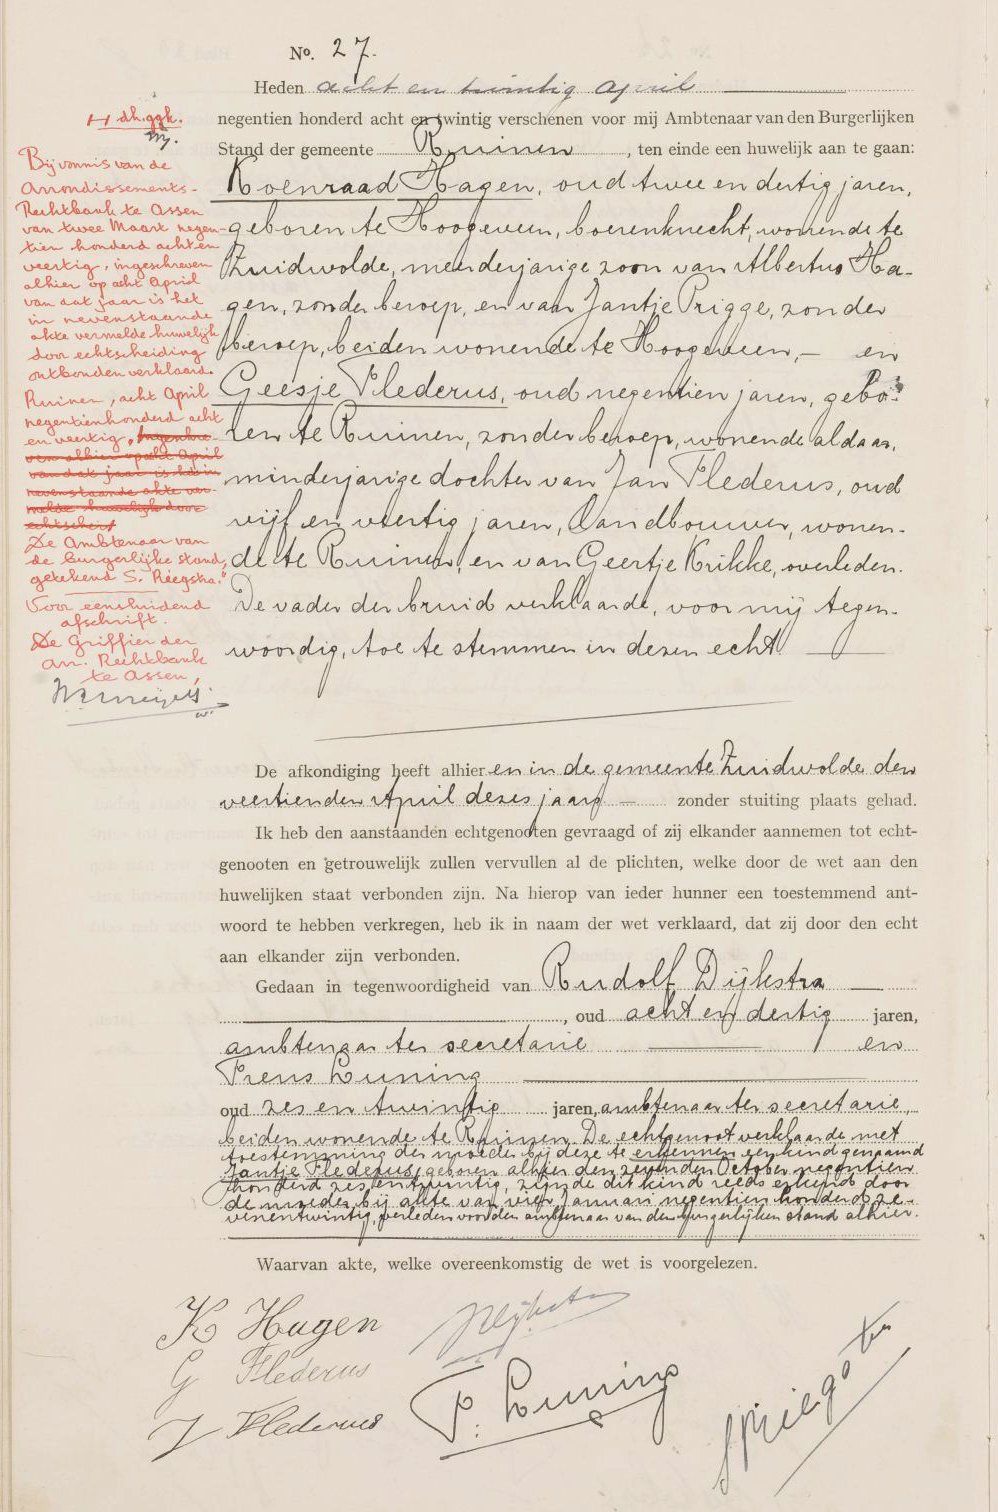 No. 27.
Heden acht en twintig April
negentien honderd acht en twintig verschenen voor mij Ambtenaar van den Burgerlijken
Stand der gemeente Ruinen, ten einde een huwelijk aan te gaan:
Koenraad Hagen, oud twee en dertig jaren,
geboren te Hoogeveen, boerenknecht, wonende te
Zuidwolde, meerderjarige zoon van Albertus Ha-
gen, zonder beroep, en van Jantje Prigge, zonder
beroep, beiden wonende te Hoogeveen, — en
Geesje Flederus, oud negentien jaren, gebo-
ren te Ruinen, zonder beroep, wonende aldaar,
minderjarige dochter van Jan Flederus, oud
vijf en veertig jaren, landbouwer, wonen-
de te Ruinen, en van Geertje Krikke, overleden.
De vader der bruid verklaarde, voor mij tegen-
woordig, toe te stemmen in dezen echt
H dh. ggk.
Bij vonnis van de
Arrondissements-
Rechtbank te Assen
van twee Maart negen-
tien honderd acht en
veertig, ingeschreven
alhier op acht April
van dat jaar is het
in nevenstaande
akte vermelde huwelijk
door echtscheiding
ontbonden verklaard.
Ruinen, acht April
negentienhonderd acht
en veertig, ingeschre-
ven alhier op acht April
van dat jaar is het in
nevenstaande akte ver-
melde huwelijk door
echtscheid
De Ambtenaar van
de burgerlijke stand,
getekend S. Piegstra."
Voor eensluidend
afschrift.
De Griffier der
arr. Rechtbank
te Assen,
De afkondiging heeft alhier en in de gemeente Zuidwolde den
veertienden April dezes jaars — zonder stuiting plaats gehad.
Ik heb den aanstaanden echtgenooten gevraagd of zij elkander aannemen tot echt-
genooten en getrouwelijk zullen vervullen al de plichten, welke door de wet aan den
huwelijken staat verbonden zijn. Na hierop van ieder hunner een toestemmend ant-
woord te hebben verkregen, heb ik in naam der wet verklaard, dat zij door den echt
aan elkander zijn verbonden.
Gedaan in tegenwoordigheid van Rudolf Dijkstra
, oud acht en dertig jaren,
ambtenaar ter secretarie en
Frens Luning
oud zes en twintig jaren, ambtenaar ter secretarie,
beiden wonende te Ruinen. De echtgenoot verklaarde met
toestemming der moeder bij deze te erkennen een kind genaamd
Jantje Flederus, geboren alhier den zevenden October negentien
honderd zes en twintig, zijnde dit kind reeds erkend door
de moeder bij akte van vier Januari negentien honderd ze-
venentwintig, verleden voor den ambtenaar van den burgerlijken stand alhier.
Waarvan akte, welke overeenkomstig de wet is voorgelezen.
K Hagen
G Flederus
J Flederus
Dijkstra
F. Luning